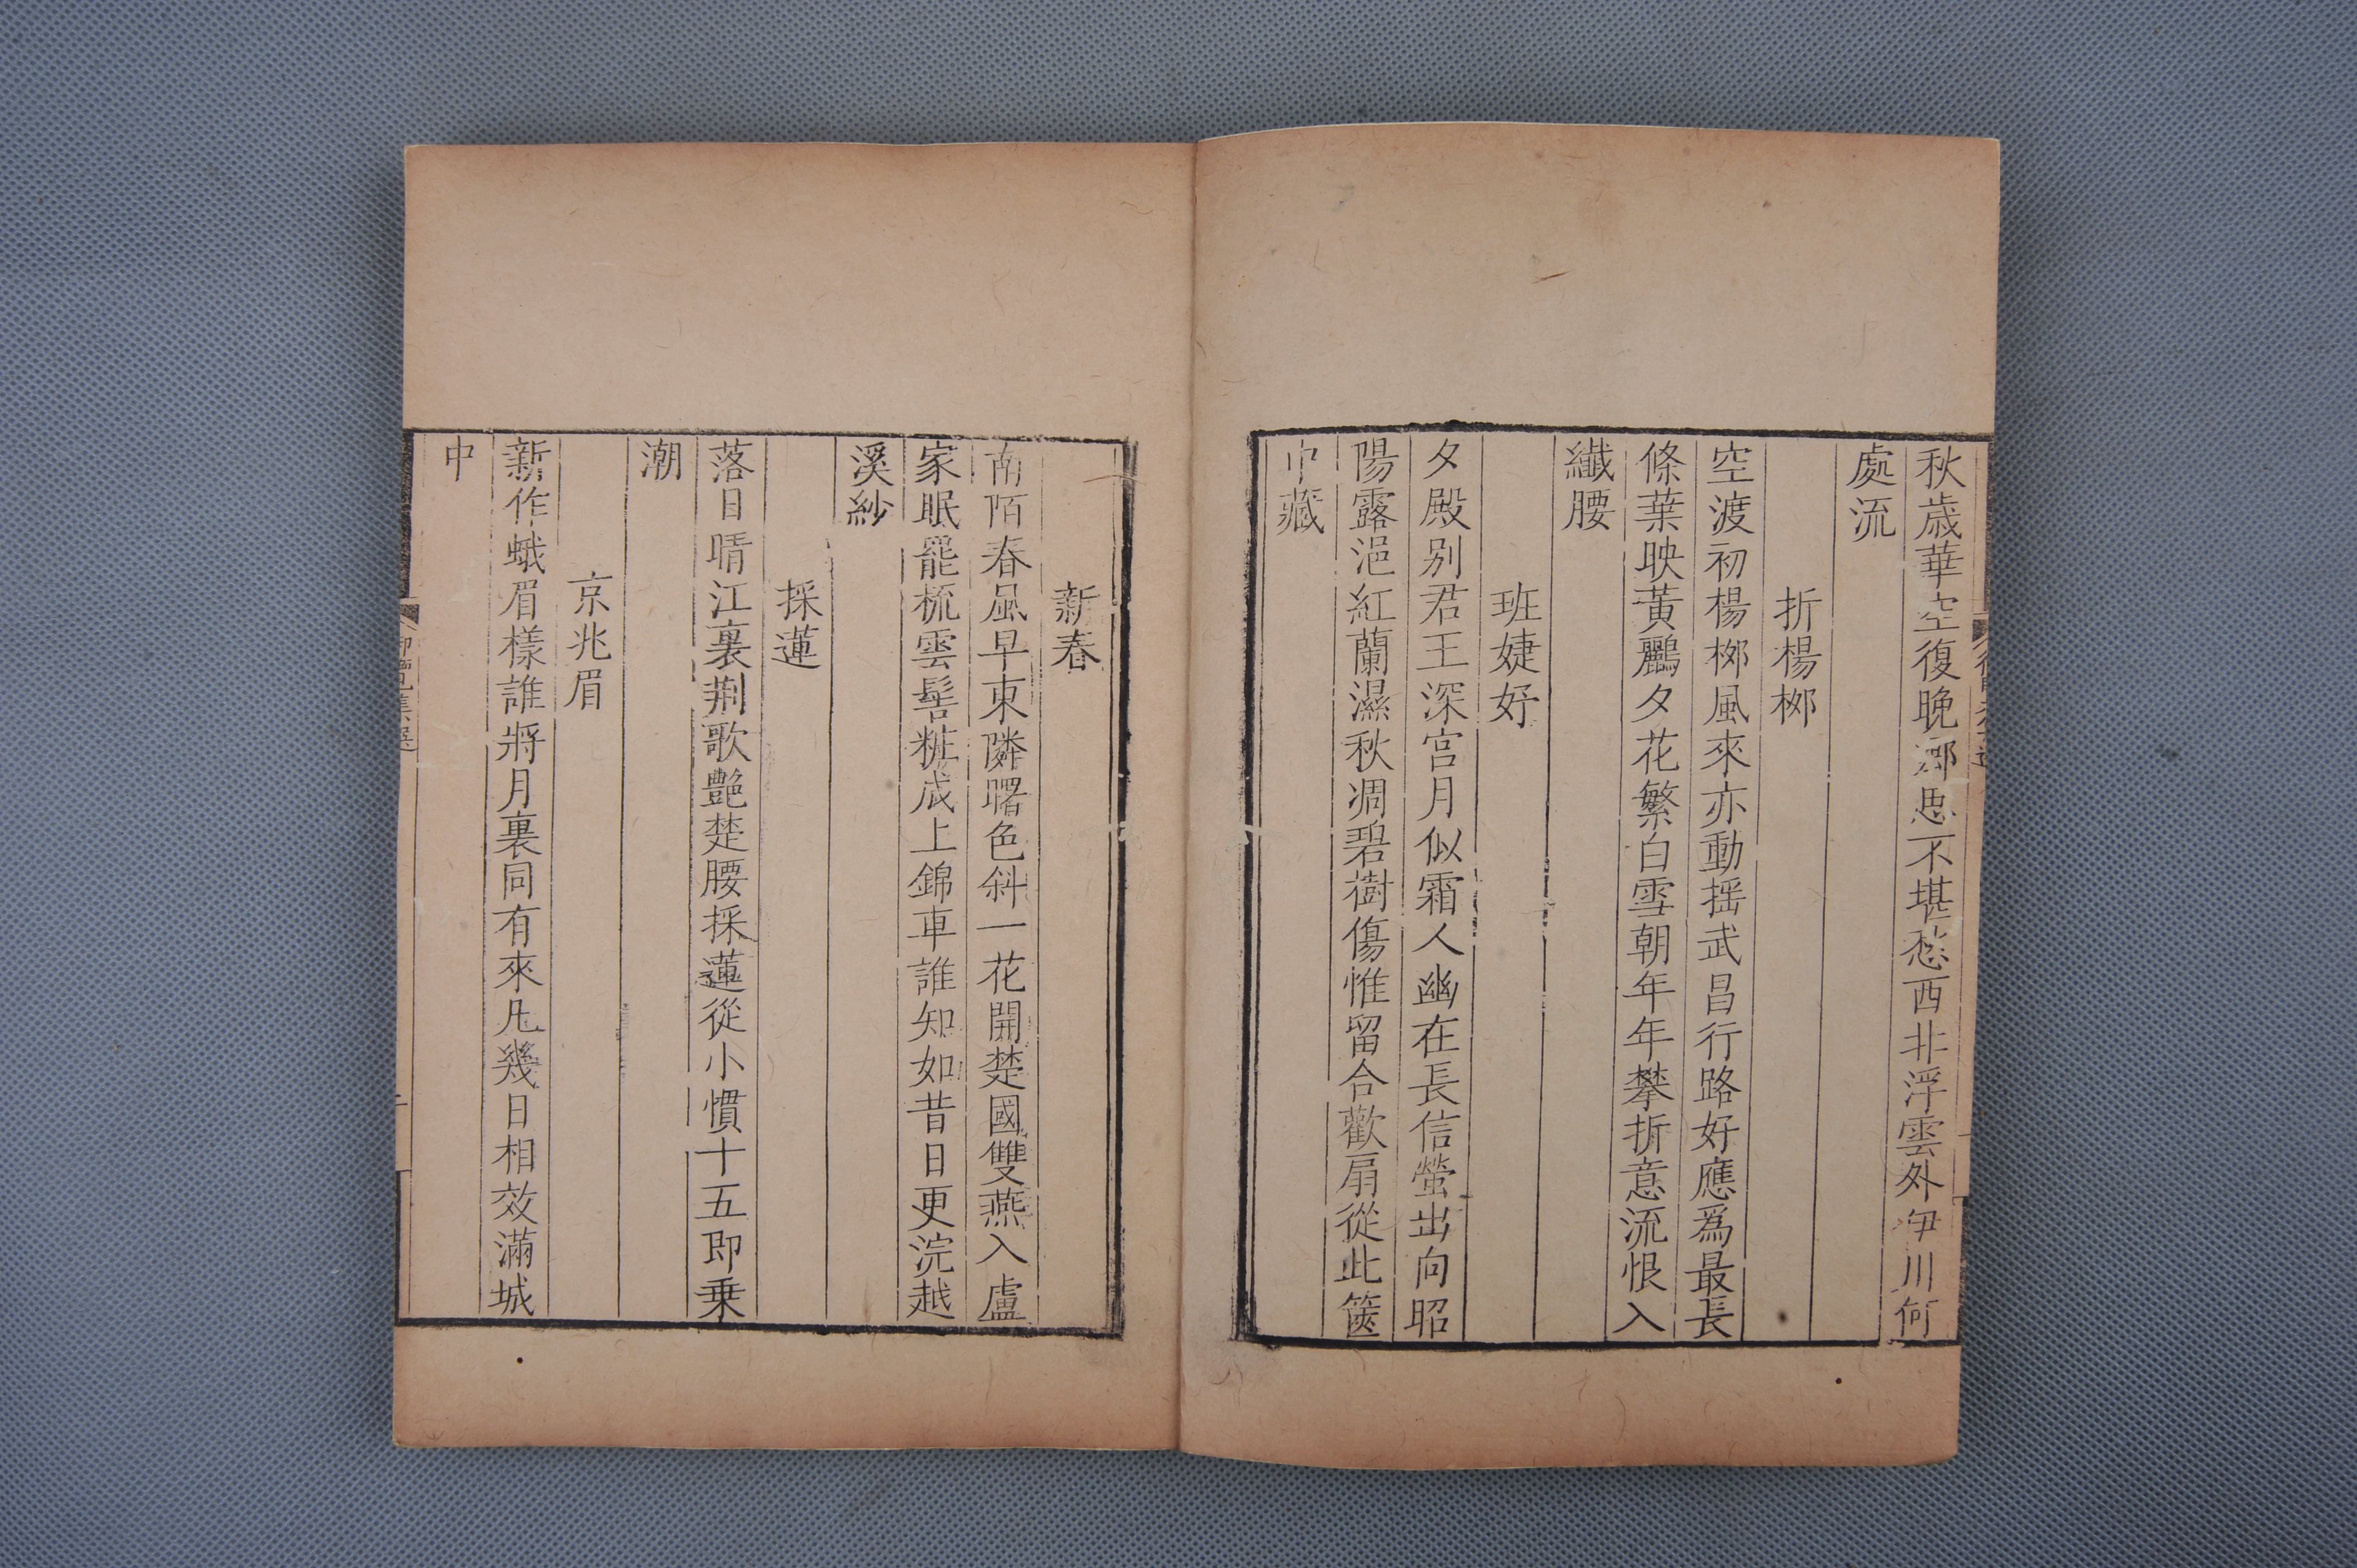 秋歲華空復晚鄉思不堪愁西北浮雲外伊川何
處流
折楊栁
空渡初楊栁風來亦動搖武昌行路好應爲最長
條葉映黃鸝夕花繁白雪朝年年攀折意流恨入
纖腰
班婕妤
夕殿别君王深宮月似霜人幽在長信螢出向昭
陽露浥紅蘭濕秋凋碧樹傷惟留合歡扇從此篋
中藏
新春
南陌春風早東隣曙色斜一花開楚國雙燕入盧
家眠罷梳雲髻粧成上錦車誰知如昔日更浣越
溪紗
採蓮
落日晴江裏荆歌艷楚腰採蓮從小慣十五即乗
潮
京兆眉
新作蛾眉樣誰將月裏同有來凡幾日相效滿城
中
御覽集